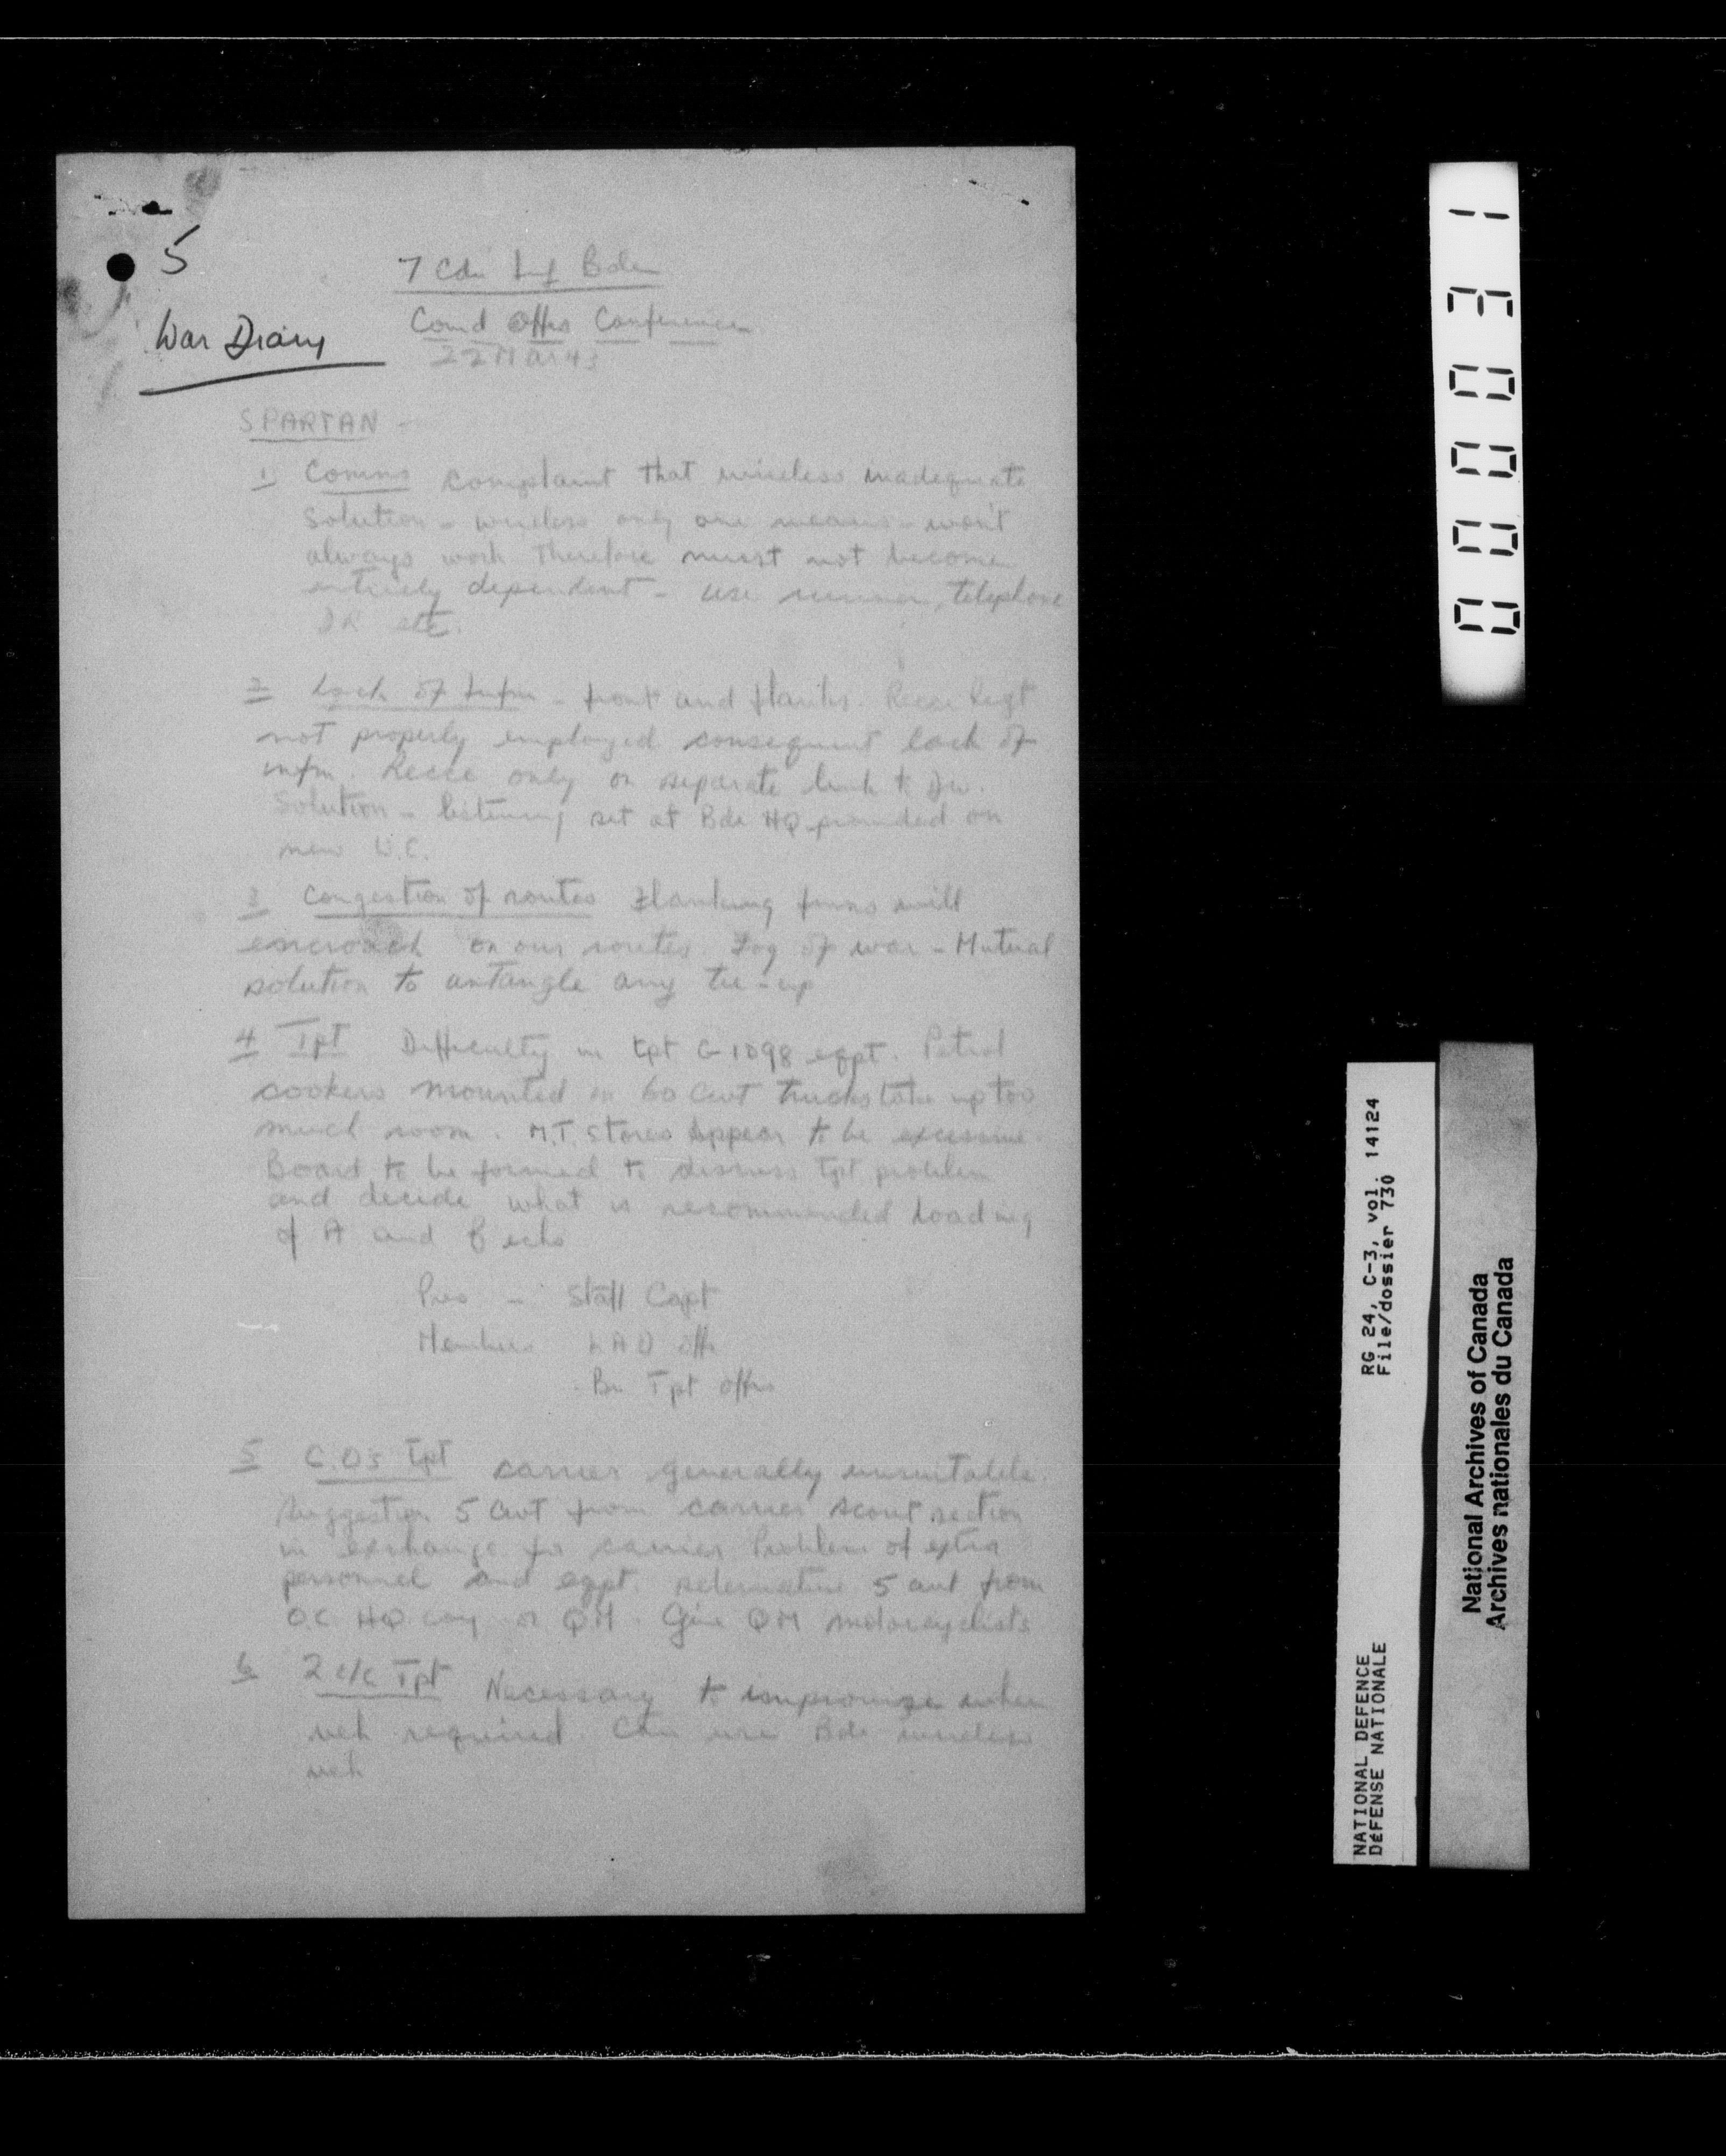 5
War Diary
7 Cdn Inf Bde
Comd Offrs Conference
22 Mar 43
SPARTAN -
1 Comns complaint that wireless inadequate
Solution - wireless only one means - won't
always work Therefore must not become
entirely dependent - use runner, telephone
DR etc.
2 Lack of Infm - front and flanks. Recce Regt
not properly employed consequent lack of
infm. Recce only on separate link to Div.
Solution - listening set at Bde HQ provided on
new W.E.
3 Congestion of routes Flanking fmns will
encroach on our routes Fog of war - Mutual
solution to untangle any tie-up
4 Tpt Difficulty in tpt G-1098 eqpt. Petrol
cookers mounted in 60 cwt trucks take up too
much room. M.T. Stores appear to be excessive
Board to be formed to discuss tpt problem
and decide what is recommended loading
of A and B echs
Pres - Staff Capt
Members LAD offr
Bn Tpt offrs
5 C.O's Tpt carrier generally unsuitable.
Suggestion 5 cwt from carrier scout section
in exchange for carrier Problem of extra
personnel and eqpt. Alternative 5 cwt from
OC HQ coy or QM. Give QM motorcyclists
6 2 i/c Tpt Necessary to improvise when
veh required. Can use Bde wireless
veh
000031
RG 24, C-3, vol. 14124
File/dossier 730
NATIONAL DEFENCE
DéFENSE NATIONALE
National Archives of Canada
Archives nationales du Canada